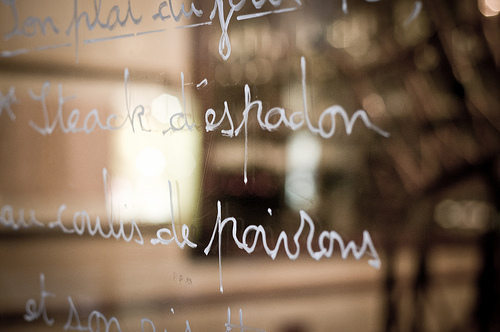 Son plat du jour
* Steack d'espadon
au coulis de poivrons
et son